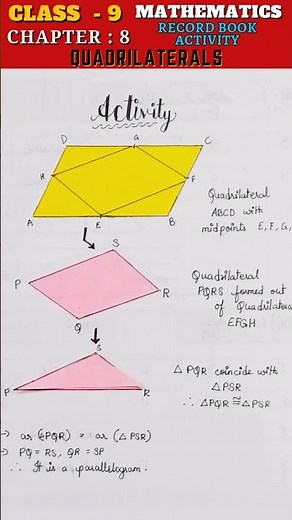 CLASS - 9 MATHEMATICS
CHAPTER : 8 RECORD BOOK
ACTIVITY
QUADRILATERALS
Activity
D G C
H F
A E B
Quadrilateral
ABCD with
midpoints E, F, G,
S
P R
Q
Quadrilateral
PQRS formed out
of Quadrilatera
EFGH
S
P R
△ PQR coincide with
△ PSR
∴ △PQR ≅ △PSR
→ ar (△PQR) = ar (△ PSR)
→ PQ = RS, QR = SP
∴ It is a parallelogram.